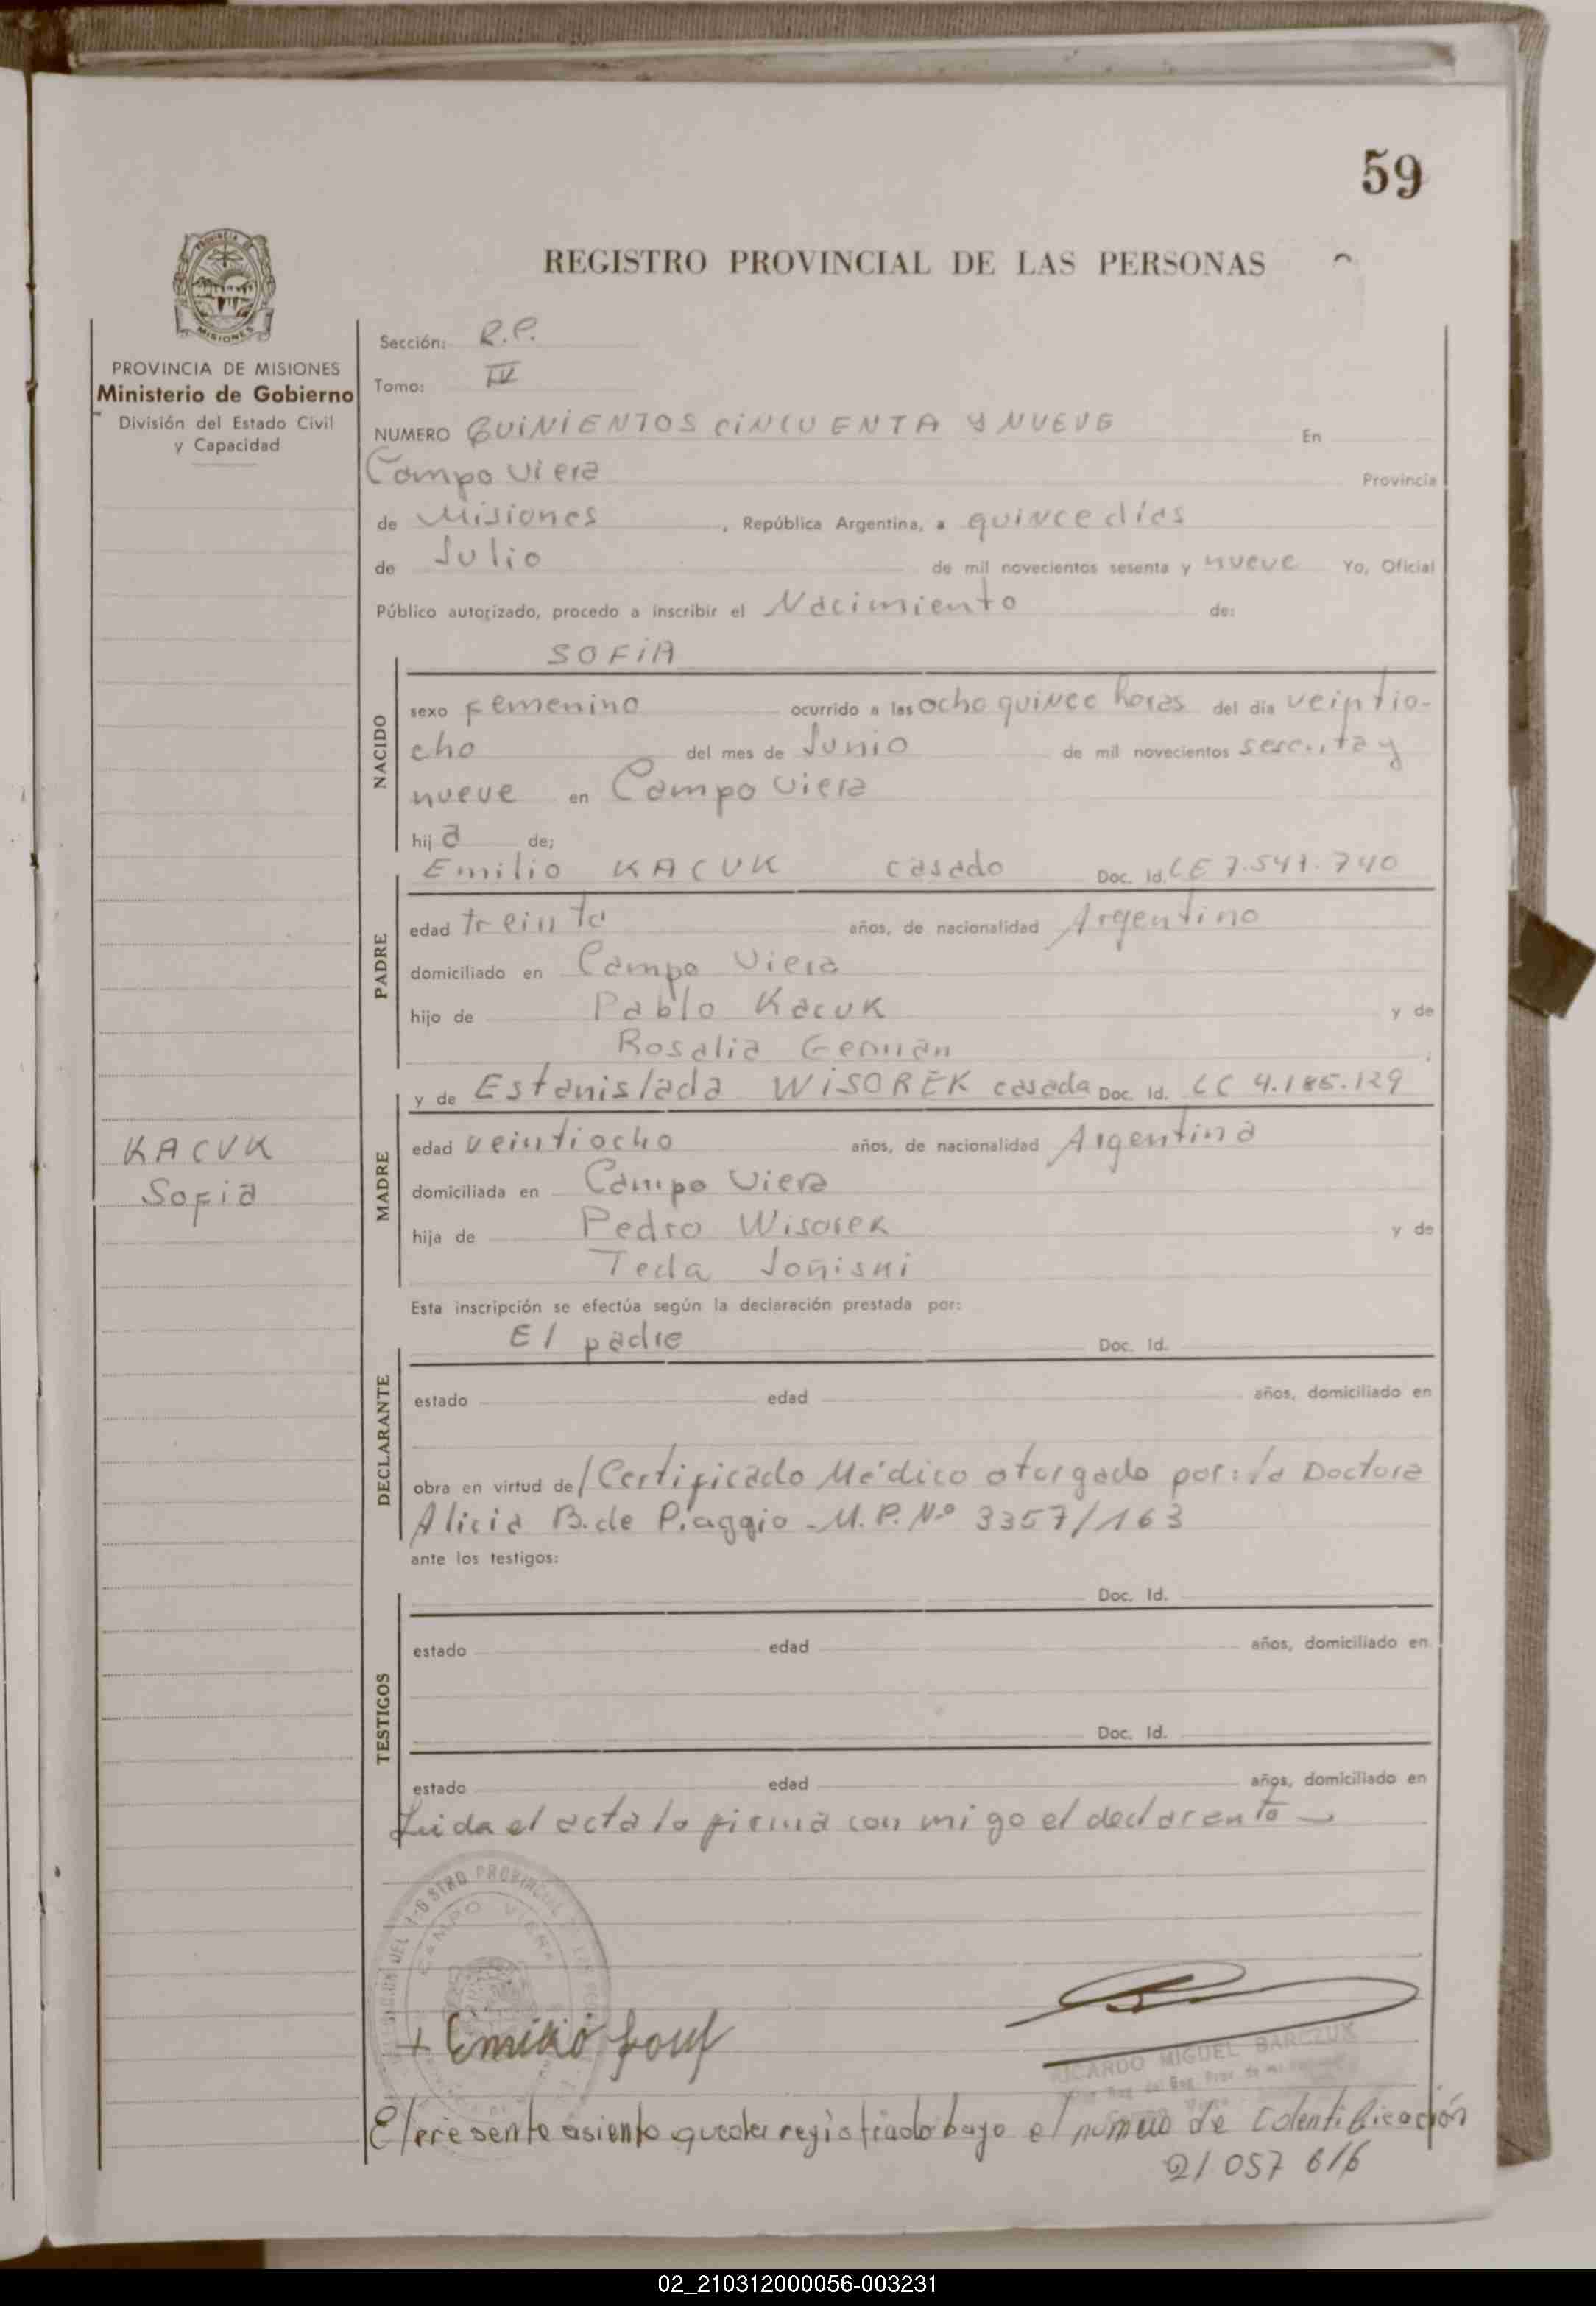 59
REGISTRO PROVINCIAL DE LAS PERSONAS
PROVINCIA DE MISIONES
Ministerio de Gobierno
División del Estado Civil
y Capacidad
Sección: R.P.
Tomo: IV
NUMERO QUINIENTOS CINCUENTA Y NUEVE En
Campo Viera Provincia
de Misiones, República Argentina, a quince días
de Julio de mil novecientos sesenta y nueve Yo, Oficial
Público autorizado, procedo a inscribir el Nacimiento de:
SOFIA
NACIDO
sexo femenino ocurrido a las ocho quince horas del día veintio-
cho del mes de Junio de mil novecientos sesenta y
nueve en Campo Viera
hij a de;
Emilio KACUK casado Doc. Id. LE 7.541.740
PADRE
edad treinta años, de nacionalidad Argentino
domiciliado en Campo Viera
hijo de Pablo Kacuk y de
Rosalia
y de Estanislada WISOREK casada Doc. Id. LC 4.185.129
MADRE
edad veintiocho años, de nacionalidad Argentina
domiciliada en Campo Viera
hija de Pedro Wisorek y de
KACUK
Sofia
Esta inscripción se efectúa según la declaración prestada por:
El padre Doc. Id.
DECLARANTE
estado edad años, domiciliado en
obra en virtud de/ Certificado Médico otorgado por: la Doctora
Alicia B. de Piaggio - M.P. Nº 3357/163
ante los testigos:
Doc. Id.
TESTIGOS
estado edad años, domiciliado en
Doc. Id.
estado edad años, domiciliado en
Leida el acta la firma con migo el declarante
CAMPO VIERA
+ Emilio
RICARDO MIGUEL BARCZUK
El presente asiento queda registrado bajo el número de Identificación
21 057 616
02_210312000056-003231